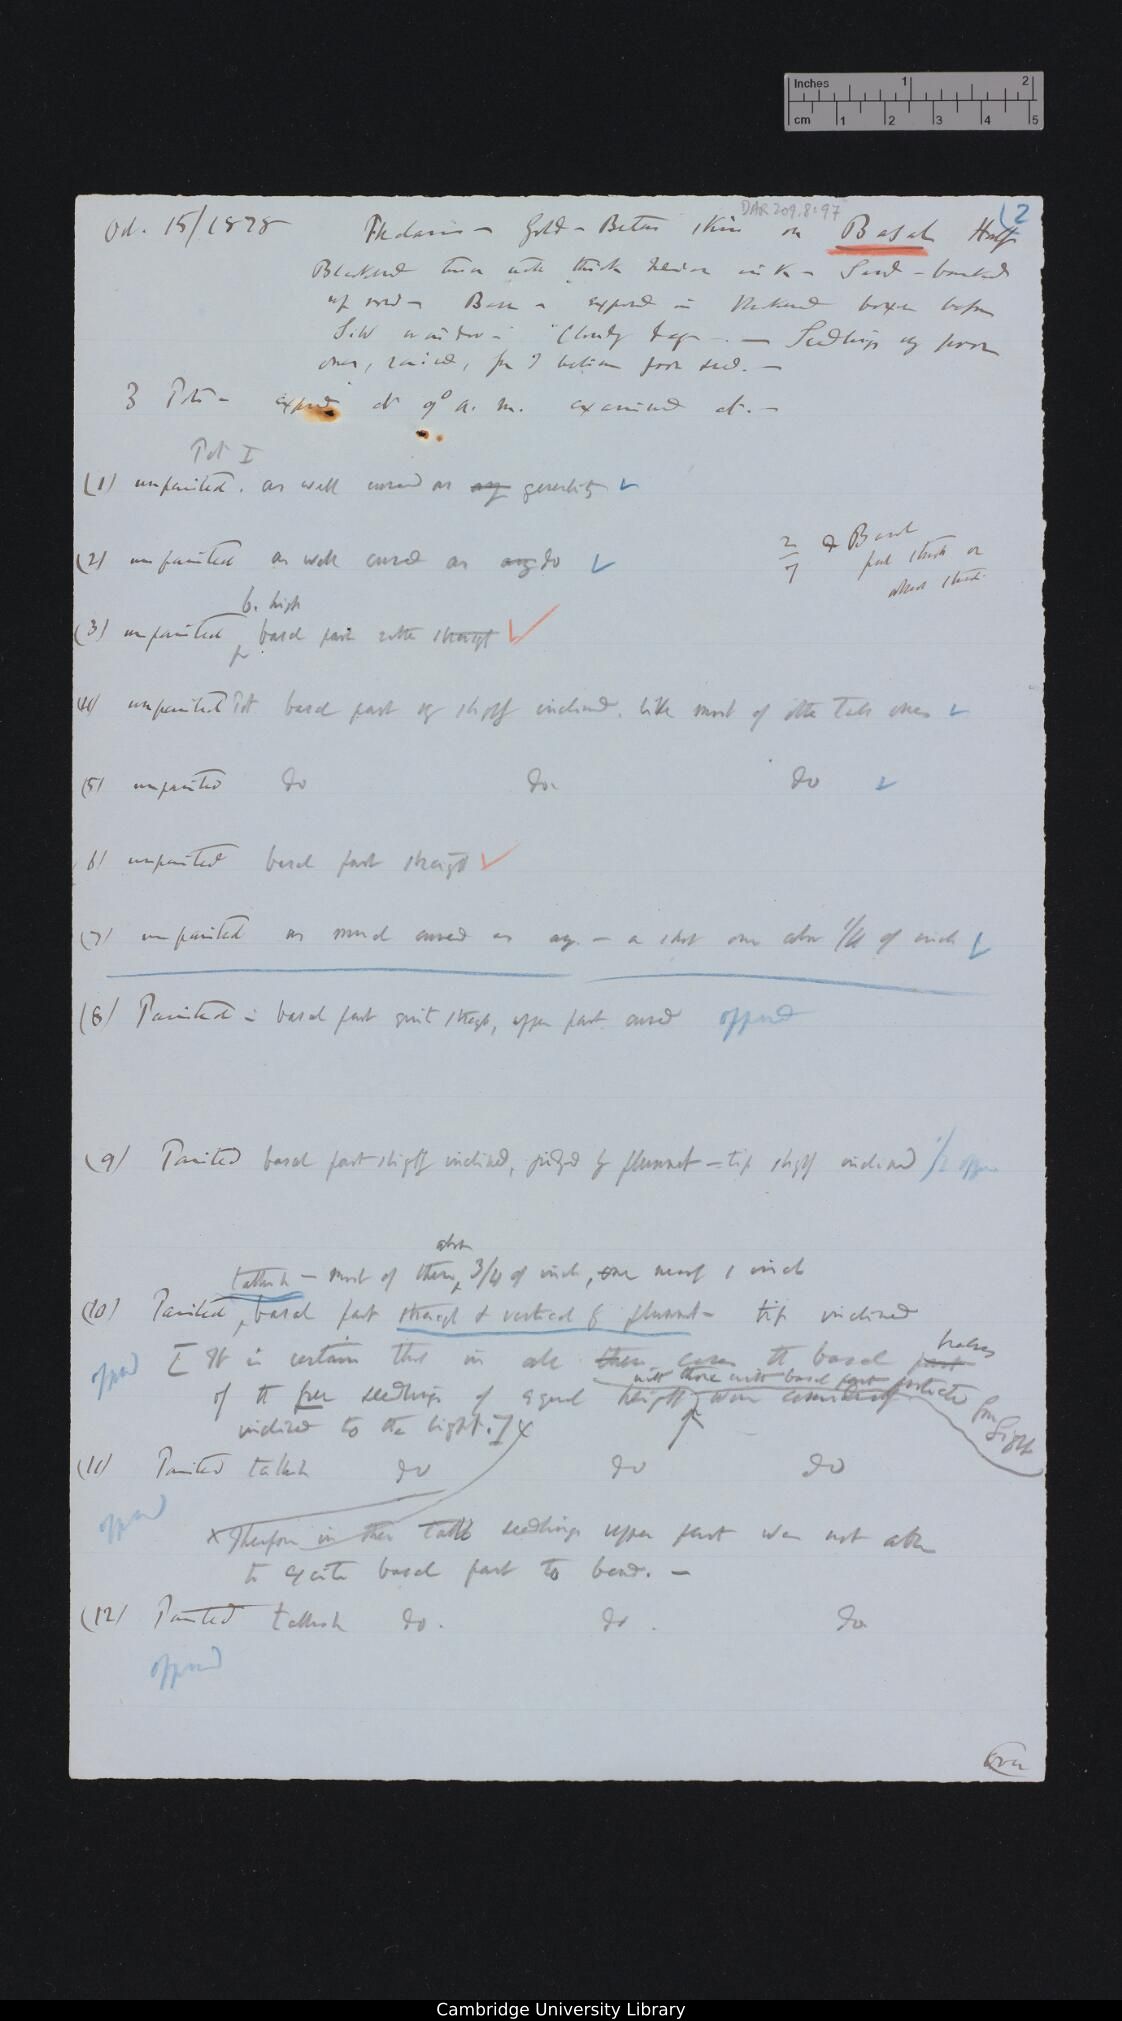 Inches 1 2
cm 1 2 3 4 5
DAR 209.8:97
(2
Oct. 15/1878 Phalaris — Gold-Beaters skin on Basal Half
Blackened then with thick Indian ink — Sand-banked
up round — Base — exposed in blackened boxes before
S.W window — Cloudy day — Seedlings very poor
ones, raised, from I believe poor seed. —
3 Pots — exposed at 9° a. m. examined at. —
Pot I
(1) unpainted. as well curved as any generally
(2) unpainted as well curved as any do
2/7 Basal
part straight or
almost straight
b. high
(3) unpainted basal part rather straight
(4) unpainted basal part very slightly inclined. like most of other tall ones
(5) unpainted do do. do
(6) unpainted basal part straight
(7) unpainted as much curved as any. — a short one about 1/4 of inch
(8) Painted — basal part quite straight, upper part curved opposed
(9) Painted basal part slightly inclined, judged by plummet — tip slightly inclined 1/2 oppos
about
tallish — most of them 3/4 of inch, one nearly 1 inch
(10) Painted, basal part straight & vertical by plummet — tip inclined
opposed
[It is certain that in all these cases the basal part halves
with those with basal part protected from light
of the free seedlings of equal height were considerably
inclined to the light.] x
(11) Painted tallish do do do
opposed
x Therefore in these tall seedlings upper part was not able
to excite basal part to bend. —
(12) Painted tallish do. do. do
opposed
Over
Cambridge University Library